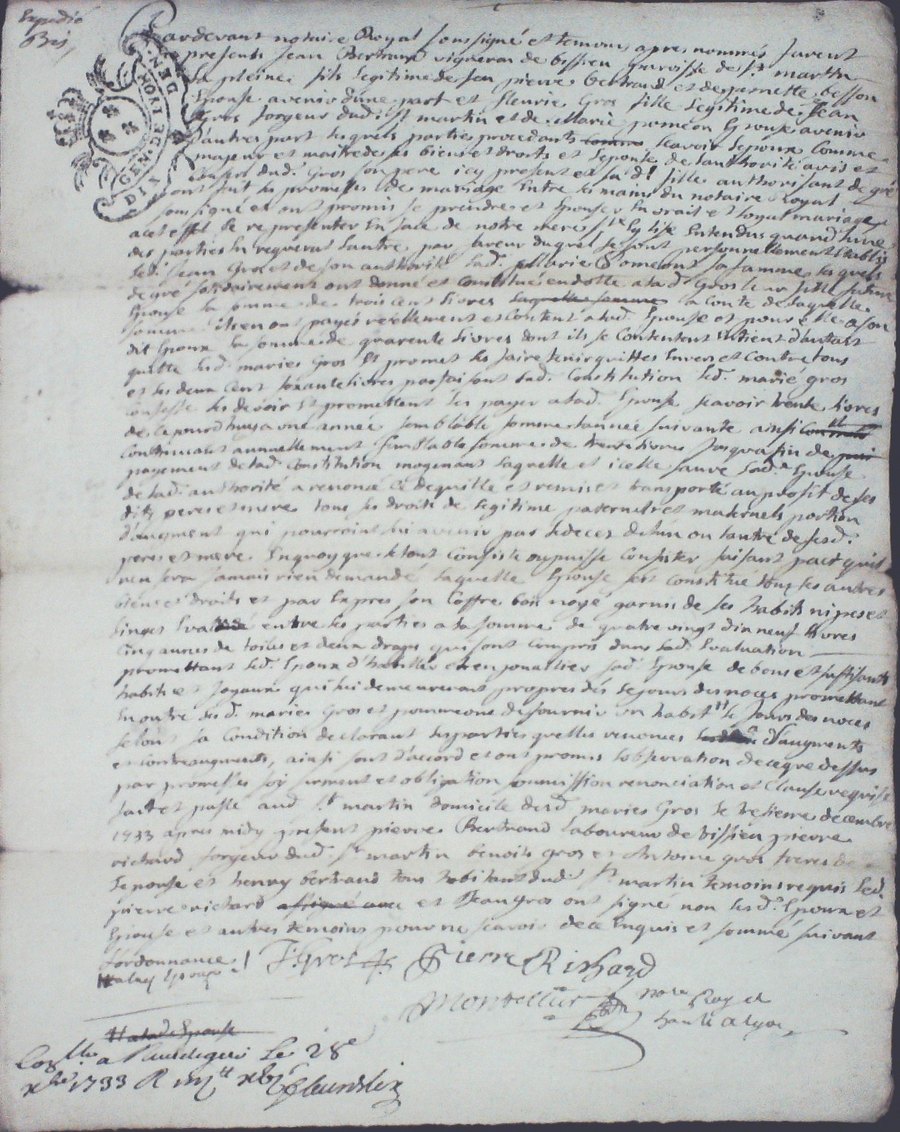 Expedié
Bis
GEN. DE LYON. DEN.
DIX
Pardevant notaire Royal soussigné et temoins apres nommés furent
presents Jean Bertrand vigneron de bissieu parroisse de St martin
la pleine fils legitime de feu pierre bertrand et de pernette besson
Epoux avenir d'une part et fleurie Gros fille legitime de Jean
Gros forgeur dud. St martin et de Marie poméon Epouse avenir
d'autre part lesquels parties procedants scavoir lepoux comme
majeur et maitre de ses biens et droits et lepouse de l'authorité avis et
dud. Gros son pere icy present et sad. fille authorisant de gré
ont fait les promesses de mariage entre les mains du notaire Royal
soussigné et ont promis se prendre et Epouser en vrait et loyal mariage
a cet effet se representer en face de notre mere Ste Eglise Entendus quand l'une
des parties en requerrat l'autre, par faveur duquel se sont personnellement Etablis
led. Jean Gros et de son authorité lad. Marie Poméont sa famme lesquels
de gré solidairement ont donné et constitué en dotte a lad. Gros leur fille future
Epouse la somme de trois cent livres a conte de laquelle
somme ils en ont payés reellement et content a lad. Epouse et pour elle a son
dit Epoux la somme de quarente livres dont ils se contentent Et tient d'autant
quitte lesd. mariés Gros Et promet les faire tenir quittes Envers et Contre tous
et les deux Cent soixante livres parfaisant lad. Constitution led. marié gros
confesse les devoir Et promettent les payer a lad. Epouse scavoir trente livres
de ce jourd'huy a une année semblable somme l'année suivante ainsi
Continuant annuellement semblable somme de trente livres jusqu'a fin de
payement de lad. constitution moyenant laquelle et icelle sauve lad. Epouse
de lad. authorité a renoncé Cédé quitté et remis et transporté au profit de ses
dits peres et mere tous les droits de legitime paternels et maternels portion
d'augment qui pourroint luy avenir par le deces de l'un ou l'autre de sesd.
peres et mere En quoy que le tout Consiste ou puisse Consister faisant pact qu'il
n'en sera jamais rien demandé laquelle Epouse sest Constitué tous ses autres
biens et droits et par Expres son Coffre bois noye garnis de ses habits nipes et
linges Evalué entre les parties a la somme de quatre vingt dix neuf livres
Cinq aunes de toiles et deux draps qui sont compris dans lad. Evaluation
promettant led. Epoux d'habiller et enjoualler sad. Epouse de bons et suffisants
habits et joyaux qui lui demeureront propres dés le jours des noces promettant
En outre lesd. mariés Gros et pomeont de fournir un habit le jours des noces
selont sa Condition declarant les parties quelles venonces d'augments
et contreaugments, ainsi sont d'accord et ont promis l'observation de ce que dessus
par promesses foy serment et obligation soumission renonciation et Clause requise
fait et passé aud. St martin domicile desd. mariés Gros le tresieme decembre
1733 apres midy present pierre Bertrand laboureur de bissieu pierre
richard forgeur dud. St martin benoits gros et Antoine gros freres de
lepouse et henry bertrand tous habitans dud. St martin temoins requis led.
pierre richard et Jean gros ont signé non lesd. Epoux et
Epouse et autres temoins pour ne scavoir de ce Enquis et sommé suivant
l'ordonnance /.
J. Gros Pierre Richard
notre Royal
a lad. Epouse
le 28e
xbre 1733